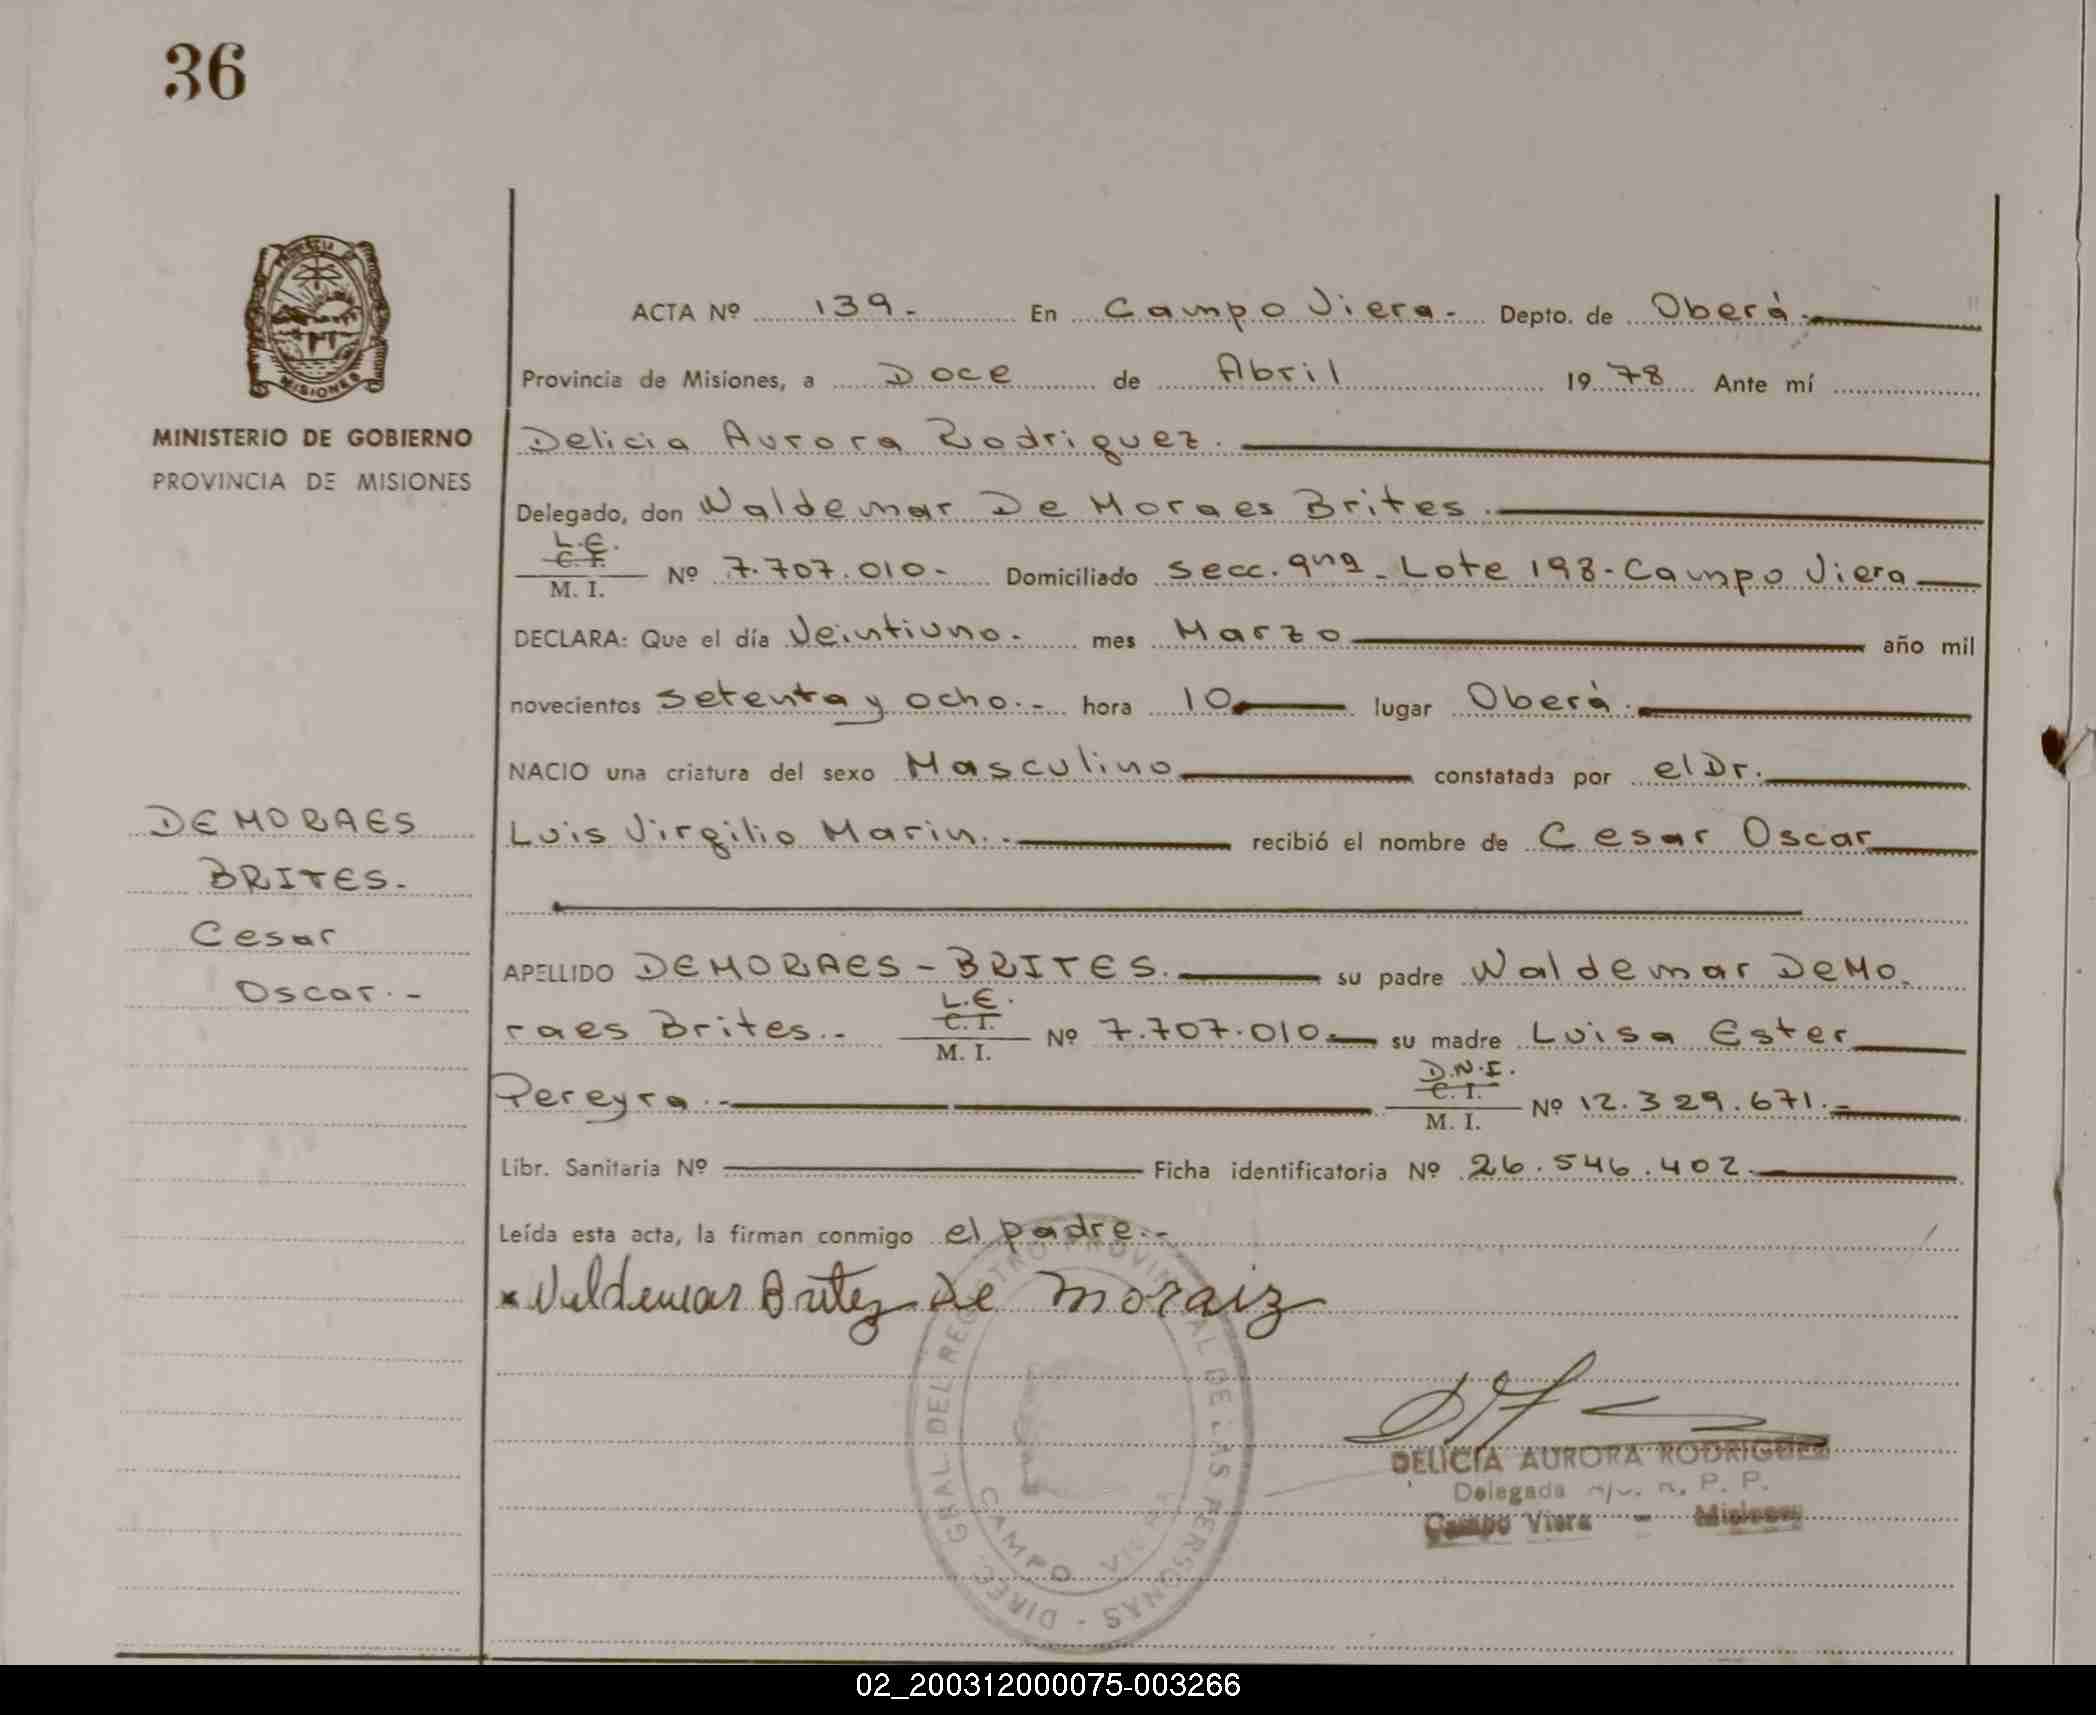 36
PROVINCIA
MISIONES
MINISTERIO DE GOBIERNO
PROVINCIA DE MISIONES
DE MORAES
BRITES.-
Cesar
Oscar.-
ACTA Nº 139.- En Campo Viera.- Depto. de Oberá.
Provincia de Misiones, a Doce de Abril 1978 Ante mí
Delicia Aurora Rodriguez.
Delegado, don Waldemar De Moraes Brites.
L.E.
C. I.
M. I. Nº 7.707.010.- Domiciliado secc. 9na - Lote 198 - Campo Viera
DECLARA: Que el día Veintiuno.- mes Marzo año mil
novecientos setenta y ocho.- hora 10 lugar Oberá.
NACIO una criatura del sexo Masculino constatada por el Dr.
Luis Virgilio Marin.- recibió el nombre de Cesar Oscar
APELLIDO DE MORAES - BRITES. su padre Waldemar De Mo-
raes Brites.- L.E. C. I. M. I. Nº 7.707.010.- su madre Luisa Ester
Pereyra.- D.N.I. C. I. M. I. Nº 12.329.671.-
Libr. Sanitaria Nº Ficha identificatoria Nº 26.546.402.
Leída esta acta, la firman conmigo el padre.-
x Valdemar Britez De Moraiz
DIREC. GRAL. DEL REGISTRO PROVINCIAL DE LAS PERSONAS -
CAMPO VIERA
DELICIA AURORA RODRIGUEZ
Delegada R. P. P.
Campo Viera - Misiones
02_200312000075-003266